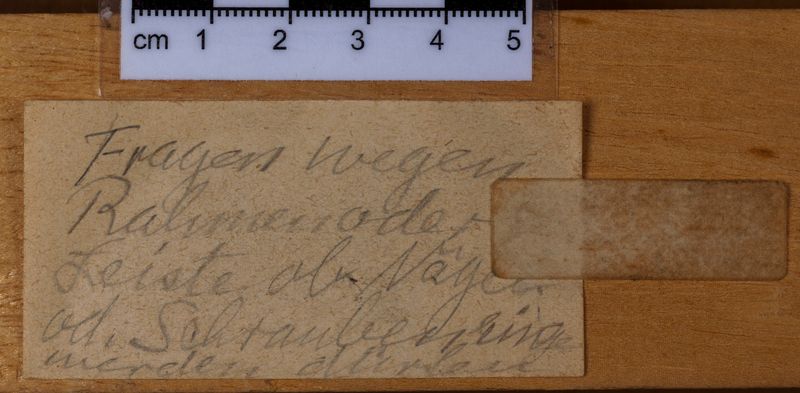 cm 1 2 3 4 5
Fragen wegen
Rahmen oder
Leiste ob Nägel
od. Schrauben
werden dürfen